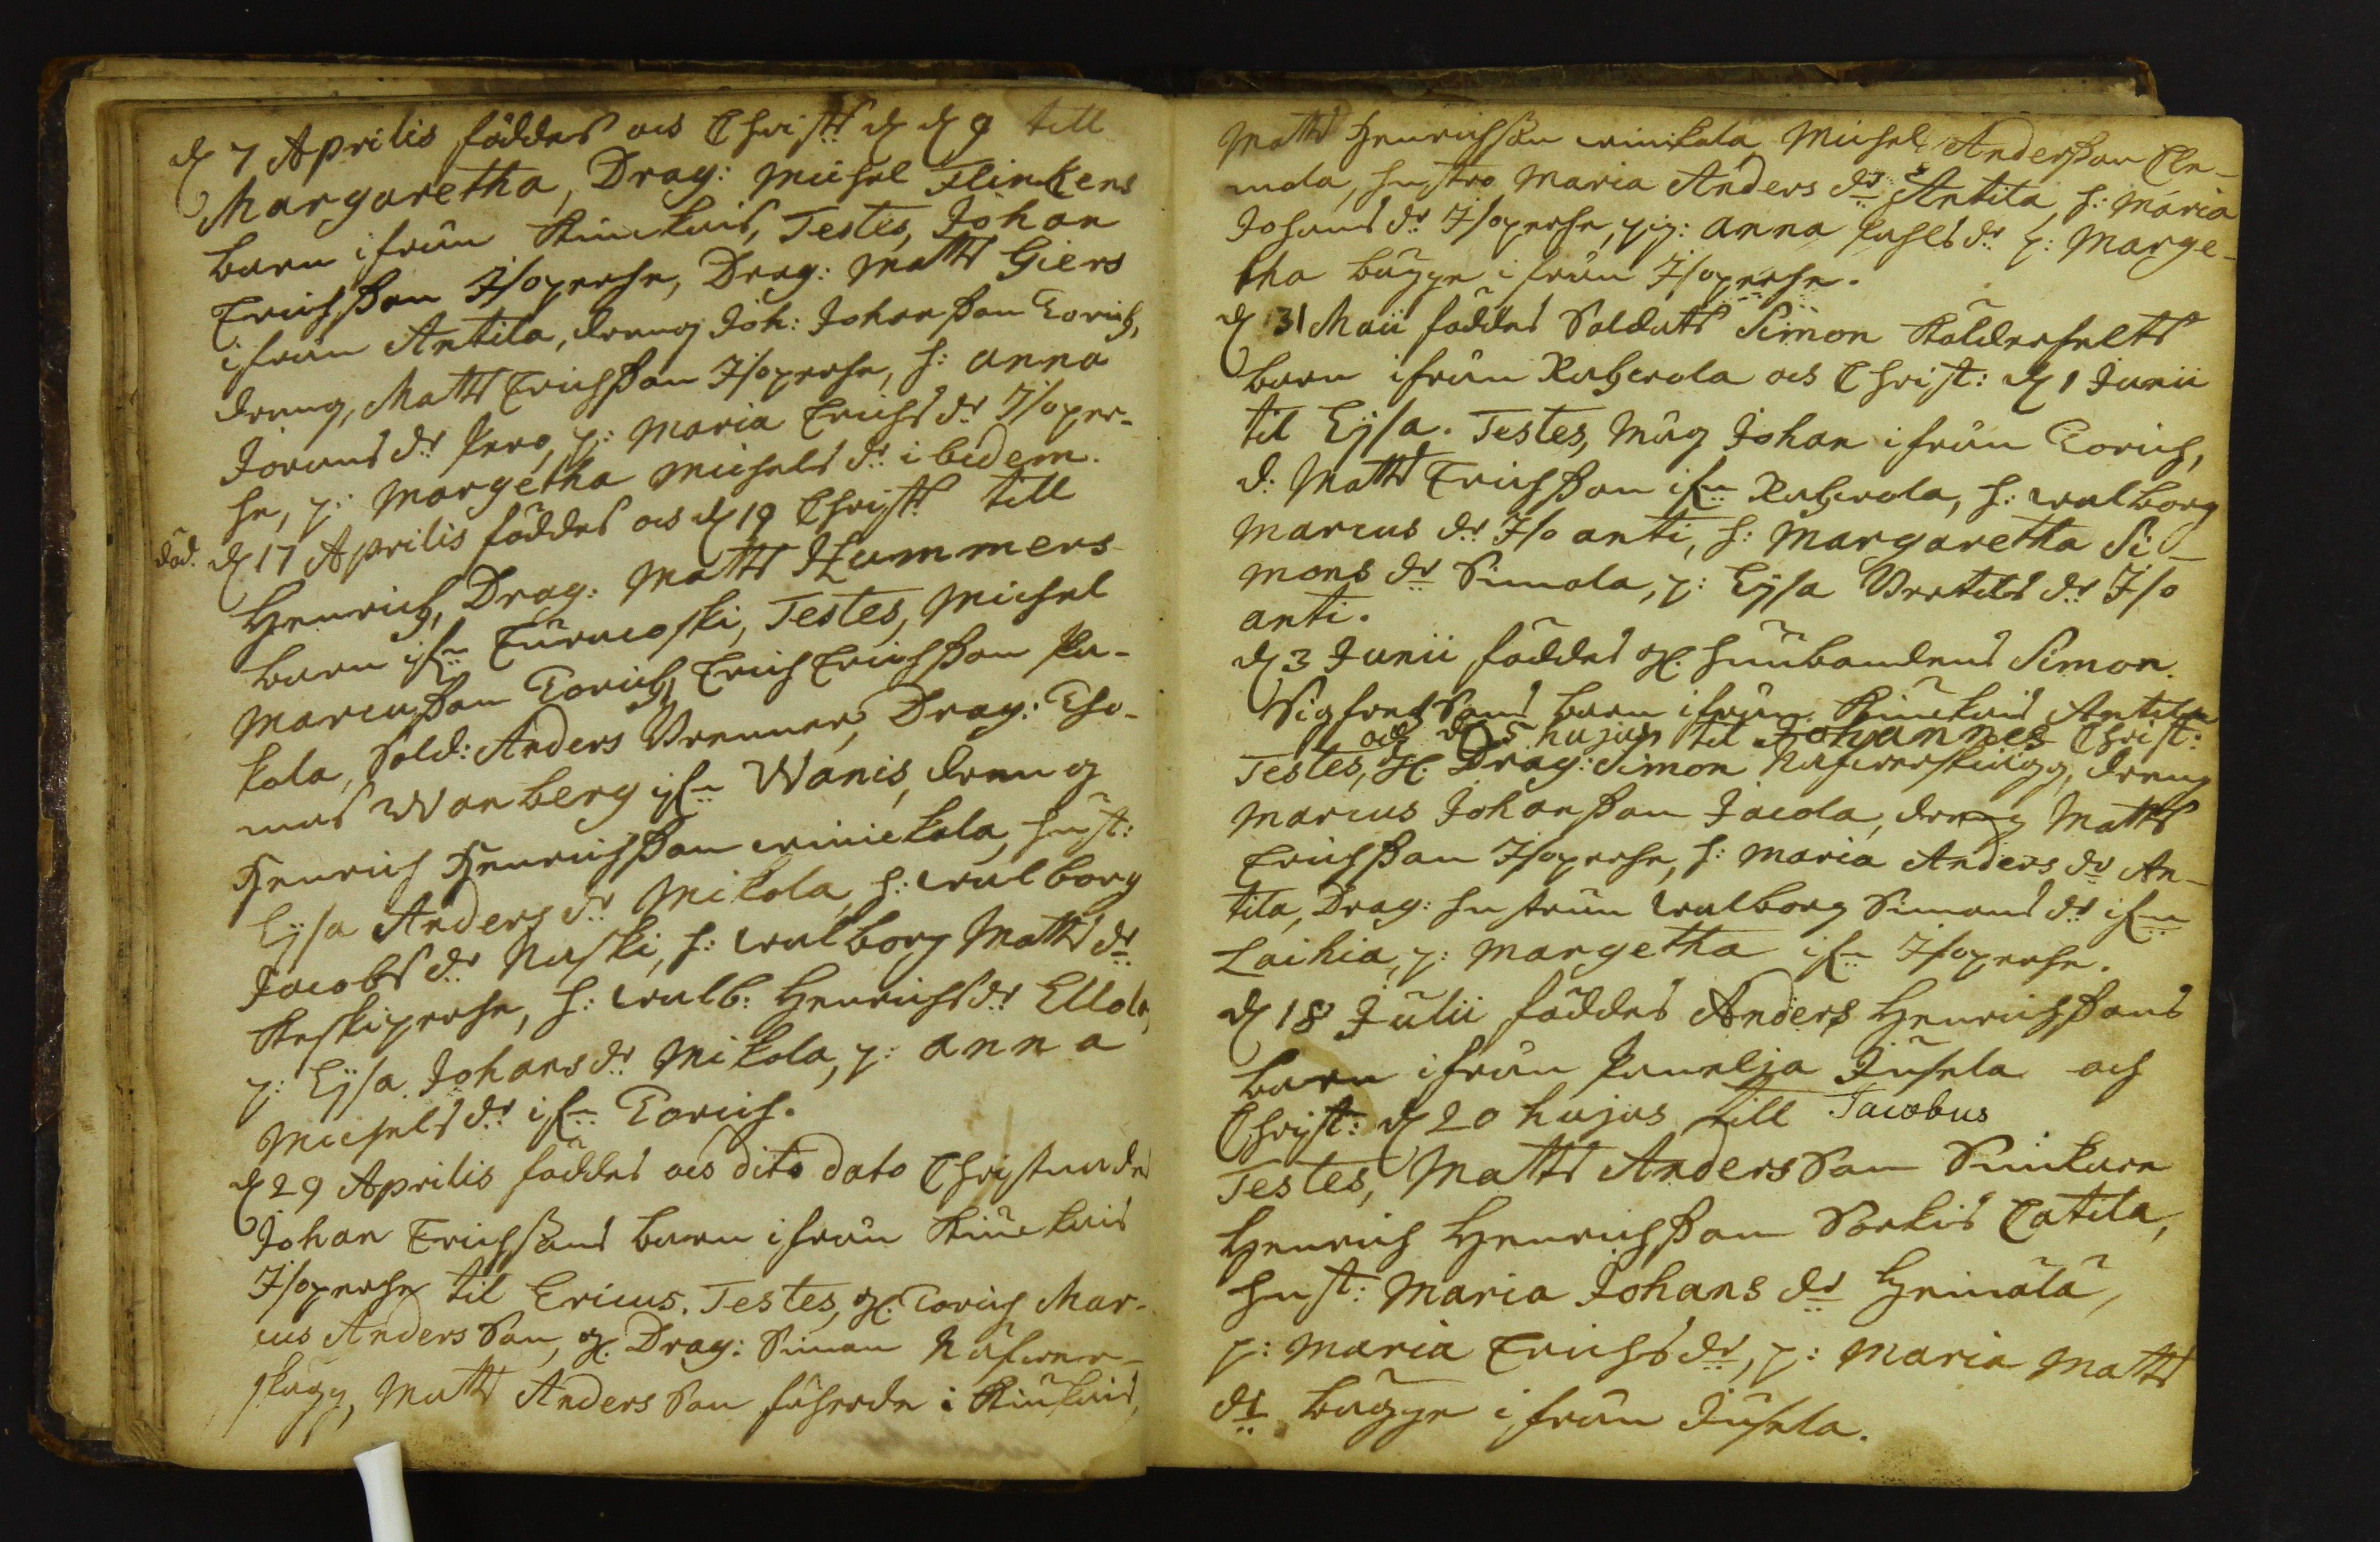 d 7 Aprilis föddes och Christ: d d 9 till
Margaretha, Drag: Michel Flinkens
barn ifrån Kiukais, Testes, Johan
Erichsson Isoperhe, Drag: Matts Giers
ifrån Antila, dreng Joh: Johansson Eorich,
dreng, Matts Erichsson Isoperhe, h: Anna
Jörans dr, p: Maria Erichs dr Isoper-
he, p: Margetha Michels dr ibidem.
död. d 17 Aprilis föddes och d 19 Christ: till
Henrich, Drag: Matts Hummers
barn ifrn Euracoski, Testes, Michel
Marcusson Eorich, Erich Erichsson Pa-
kola, Sold: Anders Brenner, Drag: Tho-
mas Wanberg ifrn Wanis, dreng
Henrich Henrichsson winikala, hust:
Lysa Anders dr Mikola, h: walborg
Jacobs dr Naski, h: walborg Matts dr
Keskiperhe, h: walb: Henrichs dr Ellola,
p: Lysa Johans dr Mikola, p: Anna
Michels dr ifrn Eorich.
d 29 Aprilis föddes och dito dato Christnades
Johan Erichssons barn ifrån Kiukais
Isoperhe til Ericus. Testes, gl. Eorich Mar-
cus Andersson, gl. Drag: Simon Näfwer-
skägg, Matts Andersson i Kiukais,
Matts Henrichsson winikala, Michel Andersson Cle-
mola, hustro Maria Anders dr Antila, h: Maria
Johans dr Isoperhe, pig: Anna Påhls dr p: Marge-
tha bägge ifrån Isoperhe.
d 31 Maii föddes Soldats Simon Kolderfelts
barn ifrån och Christ: d 1 Junii
til Lysa. Testes, Måg Johan ifrån Eorich,
d: Matts Erichsson ifrn, h: walborg
Marcus dr Iso anti, h: Margaretha Si-
mons dr Simola, p: Lysa Bertils dr Iso
anti.
d 3 Junii föddes gl. husbondens Simon
Sigfredssons barn ifrån Kiukais Antila
och d 5 hujus til Johannes Christ:
Testes, gl. Drag: Simon Näfwerskägg, dreng
Marcus Johansson Jacola, dreng Matts
Erichsson Isoperhe, h: Maria Anders dr An-
tila, Drag: hustrun walborg Simons dr ifrn
Laihia, p: Margetha ifrn Isoperhe.
d 18 Julii föddes Anders Henrichssons
barn ifrån Panelja Jusela och
Christ: d 20 hujus till Jacobus
Testes, Matts Andersson
Henrich Henrichsson Sorkis Catila,
hust: Maria Johans dr Heimälä,
p: Maria Erichs dr, p: Maria Matts
dr bägge ifrån Jusela.